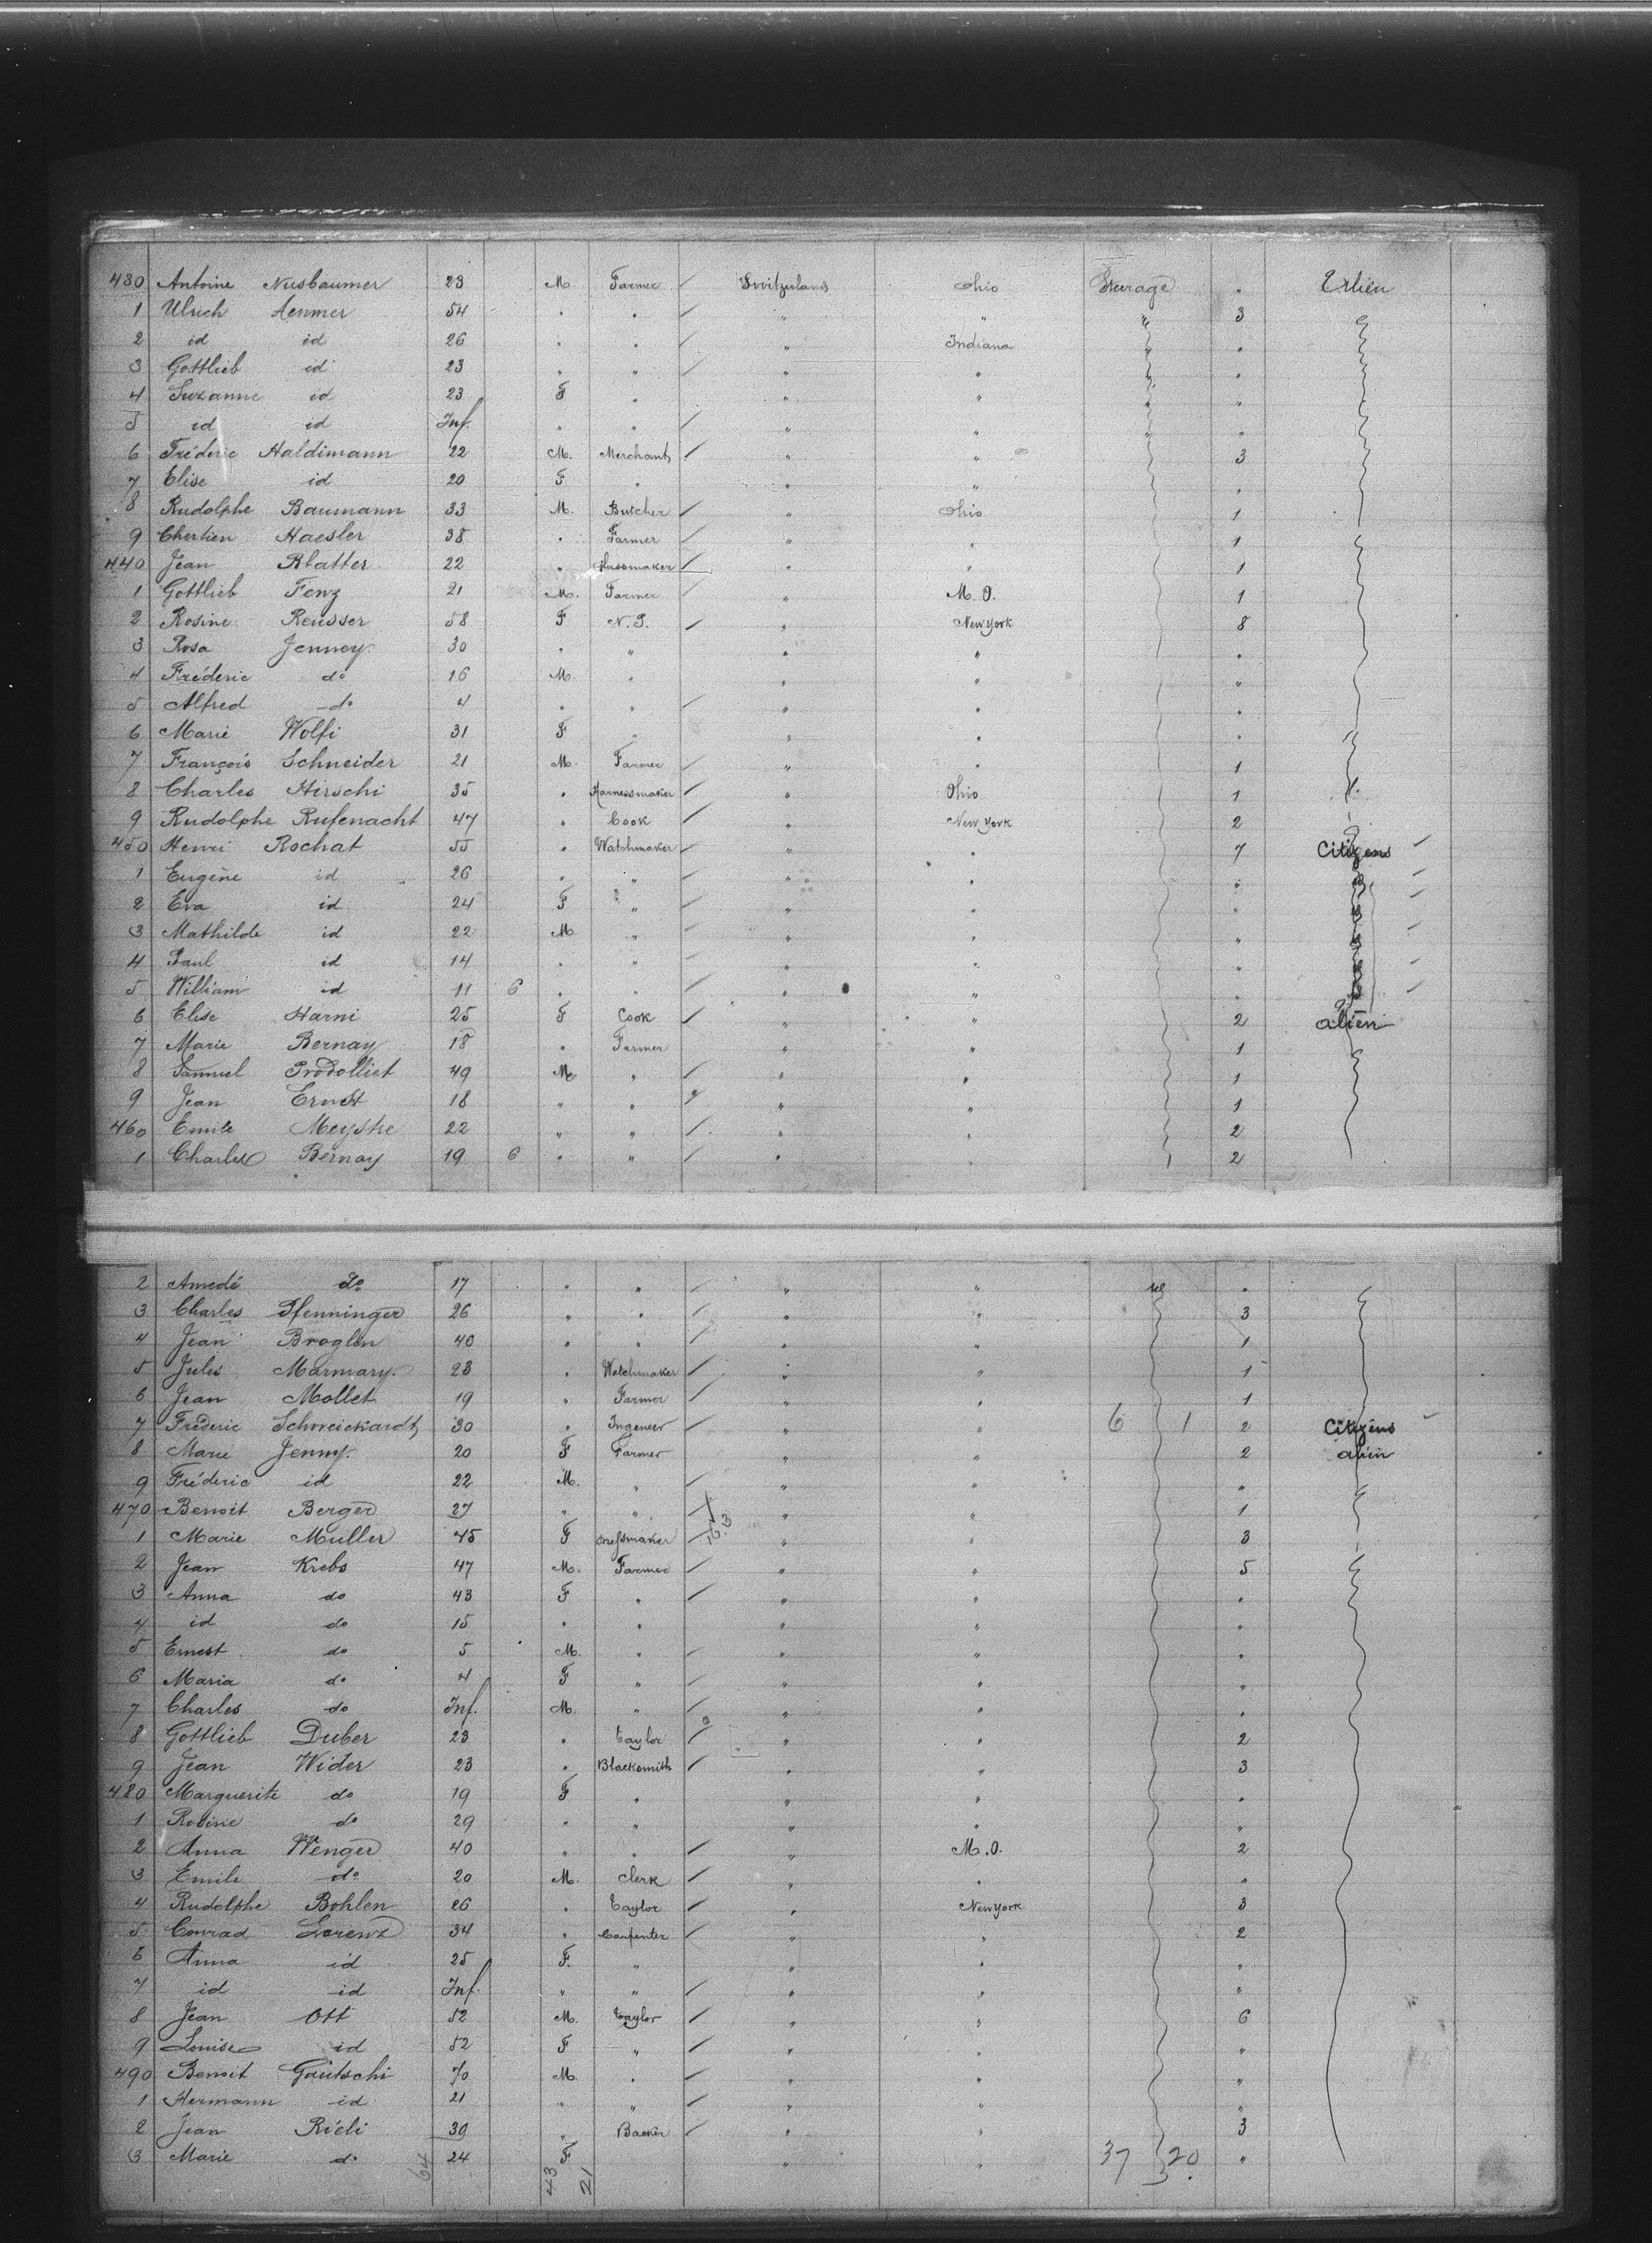 430 Antoine Nusbaumer 23 M. Farmer / Switzerland Ohio Steerage " Alien
1 Ulrich 54 " " / " " " 3
2 id id 26 " " / " Indiana " "
3 Gottlieb id 23 " " / " " " "
4 Suzanne id 23 F " " " " "
5 id id Inf. " " / " " " "
6 Fréderic Haldimann 22 M. Merchant / " " 3
7 Elise id 20 F " " " "
8 Rudolphe Baumann 33 M. Butcher / " Ohio 1
9 Chertien Haesler 38 " Farmer / " " 1
440 Jean Blatter 22 " / " " 1
1 Gottlieb Fenz 21 M. Farmer / " M.O. 1
2 Rosine Reusser 58 F N. / " New York 8
3 Rosa Jenney 30 " " " " "
4 Fréderic do 16 M. " " " "
5 Alfred do 4 " " / " " "
6 Marie Wolfi 31 F " " " "
7 François Schneider 21 M. Farmer / " " 1
8 Charles Hirschi 35 " Harnessmaker / " Ohio 1
9 Rudolphe Rufenacht 47 " Cook / " New York 2
450 Henri Rochat 55 " Watchmaker / " " 7 Citizens
1 Eugène id 26 " " / " " "
2 Eva id 24 F " / " " "
3 Mathilde id 22 M " / " " "
4 Paul id 14 " " / " " "
5 William id 11 6 " " / " " "
6 Elise Harni 25 F Cook / " " 2 alien
7 Marie Bernay 18 " Farmer " " 1
8 Samuel Prodolliet 49 M " / " " 1
9 Jean Ernst 18 " " " " 1
460 Emile 22 " " / " " 2
1 Charles Bernay 19 6 " " / " " 2
2 Amedé do 17 " " / " " " "
3 Charles Pfenninger 26 " " / " " 3
4 Jean Broglin 40 " " / " " 1
5 Jules Marmary 23 " Watchmaker / " " 1
6 Jean Mollet 19 " Farmer / " " 1
7 Fréderic Schweickardt 30 " Ingeneer / " " 6 1 2 Citizens
8 Marie Jenny 20 F Farmer " " 2 alien
9 Fréderic id 22 M. " / " " "
470 Benoit Berger 27 " " / " " 1
1 Marie Muller 45 F / " " 3
2 Jean Krebs 47 M. Farmer / " " 5
3 Anna do 43 F " / " " "
4 id do 15 " " " " "
5 Ernest do 5 M. " / " " "
6 Maria do 4 F " / " " "
7 Charles do Inf. M. " / " " "
8 Gottlieb Duber 23 " taylor / " " 2
9 Jean Wider 23 " Blacksmith / " " 3
480 Marguerite do 19 F " " " "
1 Rosine do 29 " " " " "
2 Anna Wenger 40 " " / " M.O. 2
3 Emile do 20 M. Clerk / " " "
4 Rudolphe Bohlen 26 " taylor / " New York 3
5 Conrad Lorenz 34 " Carpenter / " " 2
6 Anna id 25 F. " " " "
7 id id Inf. " " / " " "
8 Jean Ott 52 M. taylor / " " 6
9 Louise id 52 F " / " " "
490 Benoit Gautschi 70 M. " / " " "
1 Hermann id 21 " " / " " "
2 Jean Rieli 39 " Backer / " " 3
3 Marie do 24 F " " 37 20 "
64 43 21